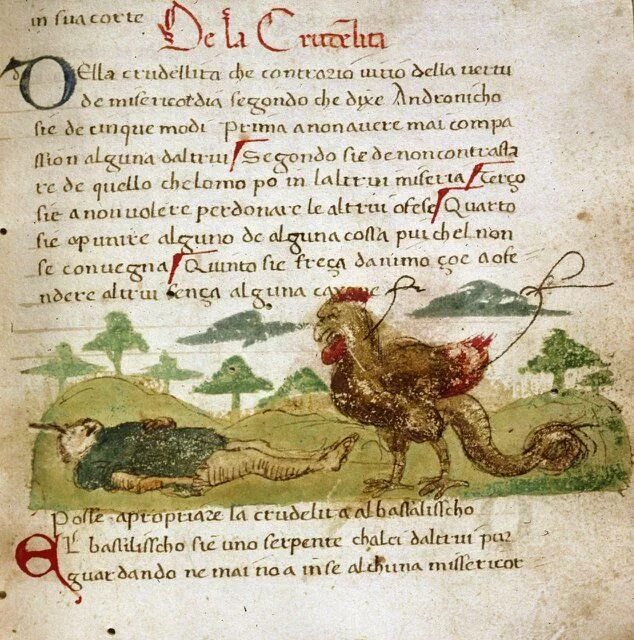 in sua corte De la Crudelita
DElla crudellita che contrario uitio della uertu
de misericordia segondo che dixe Andronicho
sie de cinque modi Prima a non auere mai compa
ssion alguna daltrui Segondo sie de non contrasta
re de quello che lomo po in laltrui miseria Terço
sie a non uolere perdonare le altrui ofese Quarto
sie apunire alguno de alguna cossa piu chel non
se conuegna Quinto sie freça danimo çoe a ofe
ndere altrui sença alguna caxone
Posse apropriare la crudelita al bassalisscho
EL basilisscho sie uno serpente chalci daltrui pur
guardando ne mai no a in se alchuna missericor